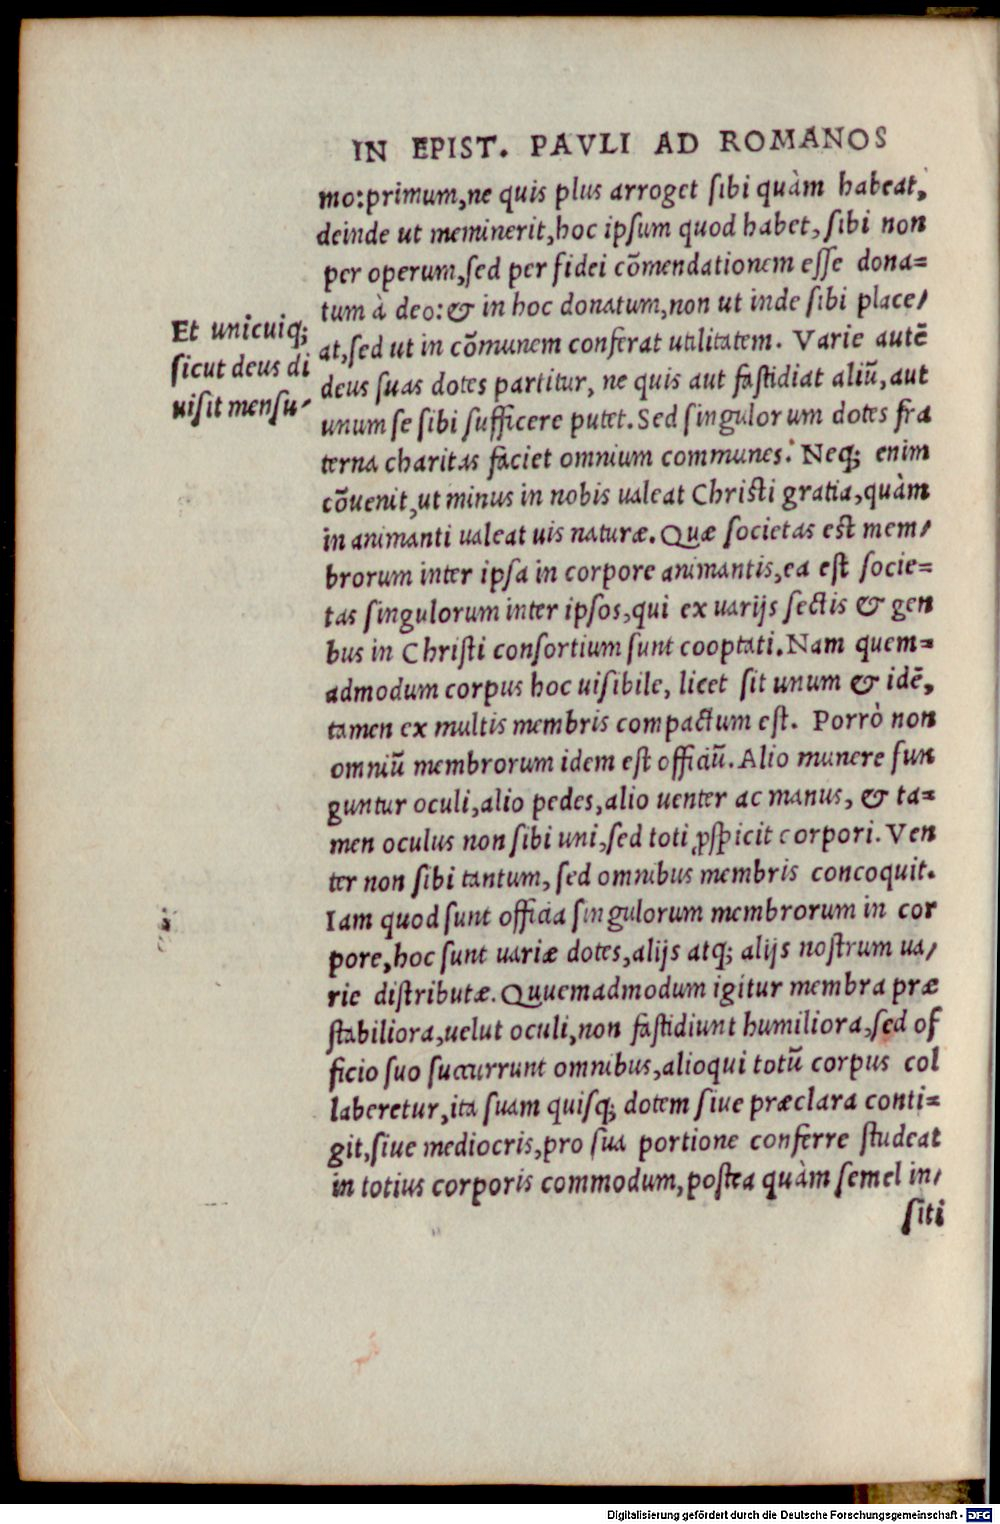 IN EPIST. PAVLI AD ROMANOS
mo:primum,ne quis plus arroget ſibi quàm habeat,
deinde ut meminerit,hoc ipſum quod habet, ſibi non
per operum,ſed per fidei cōmendationem eſſe dona=
tum à deo:& in hoc donatum,non ut inde ſibi place/
at,ſed ut in cōmunem conferat utilitatem. Varie autē
deus ſuas dotes partitur, ne quis aut faſtidiat aliū,aut
unum ſe ſibi ſufficere putet. Sed ſingulorum dotes fra
terna charitas faciet omnium communes. Neq; enim
cōuenit,ut minus in nobis ualeat Chriſti gratia,quàm
in animanti ualeat uis naturæ. Quæ ſocietas eſt mem/
brorum inter ipſa in corpore animantis,ea eſt ſocie=
tas ſingulorum inter ipſos,qui ex uarijs ſectis & gen
bus in Chriſti conſortium ſunt cooptati. Nam quem=
admodum corpus hoc uiſibile, licet ſit unum & idē,
tamen ex multis membris compactum eſt. Porrò non
omniū membrorum idem eſt officiū. Alio munere fun
guntur oculi,alio pedes,alio uenter ac manus, & ta=
men oculus non ſibi uni,ſed toti ꝓſpicit corpori. Ven
ter non ſibi tantum, ſed omnibus membris concoquit.
Iam quod ſunt officia ſingulorum membrorum in cor
pore,hoc ſunt uariæ dotes,alijs atq; alijs noſtrum ua/
rie diſtributæ. Quuemadmodum igitur membra præ
ſtabiliora,uelut oculi,non faſtidiunt humiliora,ſed of
ficio ſuo ſuccurrunt omnibus,alioqui totū corpus col
laberetur,ita ſuam quiſq; dotem ſiue præclara conti=
git,ſiue mediocris,pro ſua portione conferre ſtudeat
in totius corporis commodum,poſtea quàm ſemel in/
ſiti
Et unicuiq;
ſicut deus di
uiſit menſu/
Digitalisierung gefördert durch die Deutsche Forschungsgemeinschaft - DFG